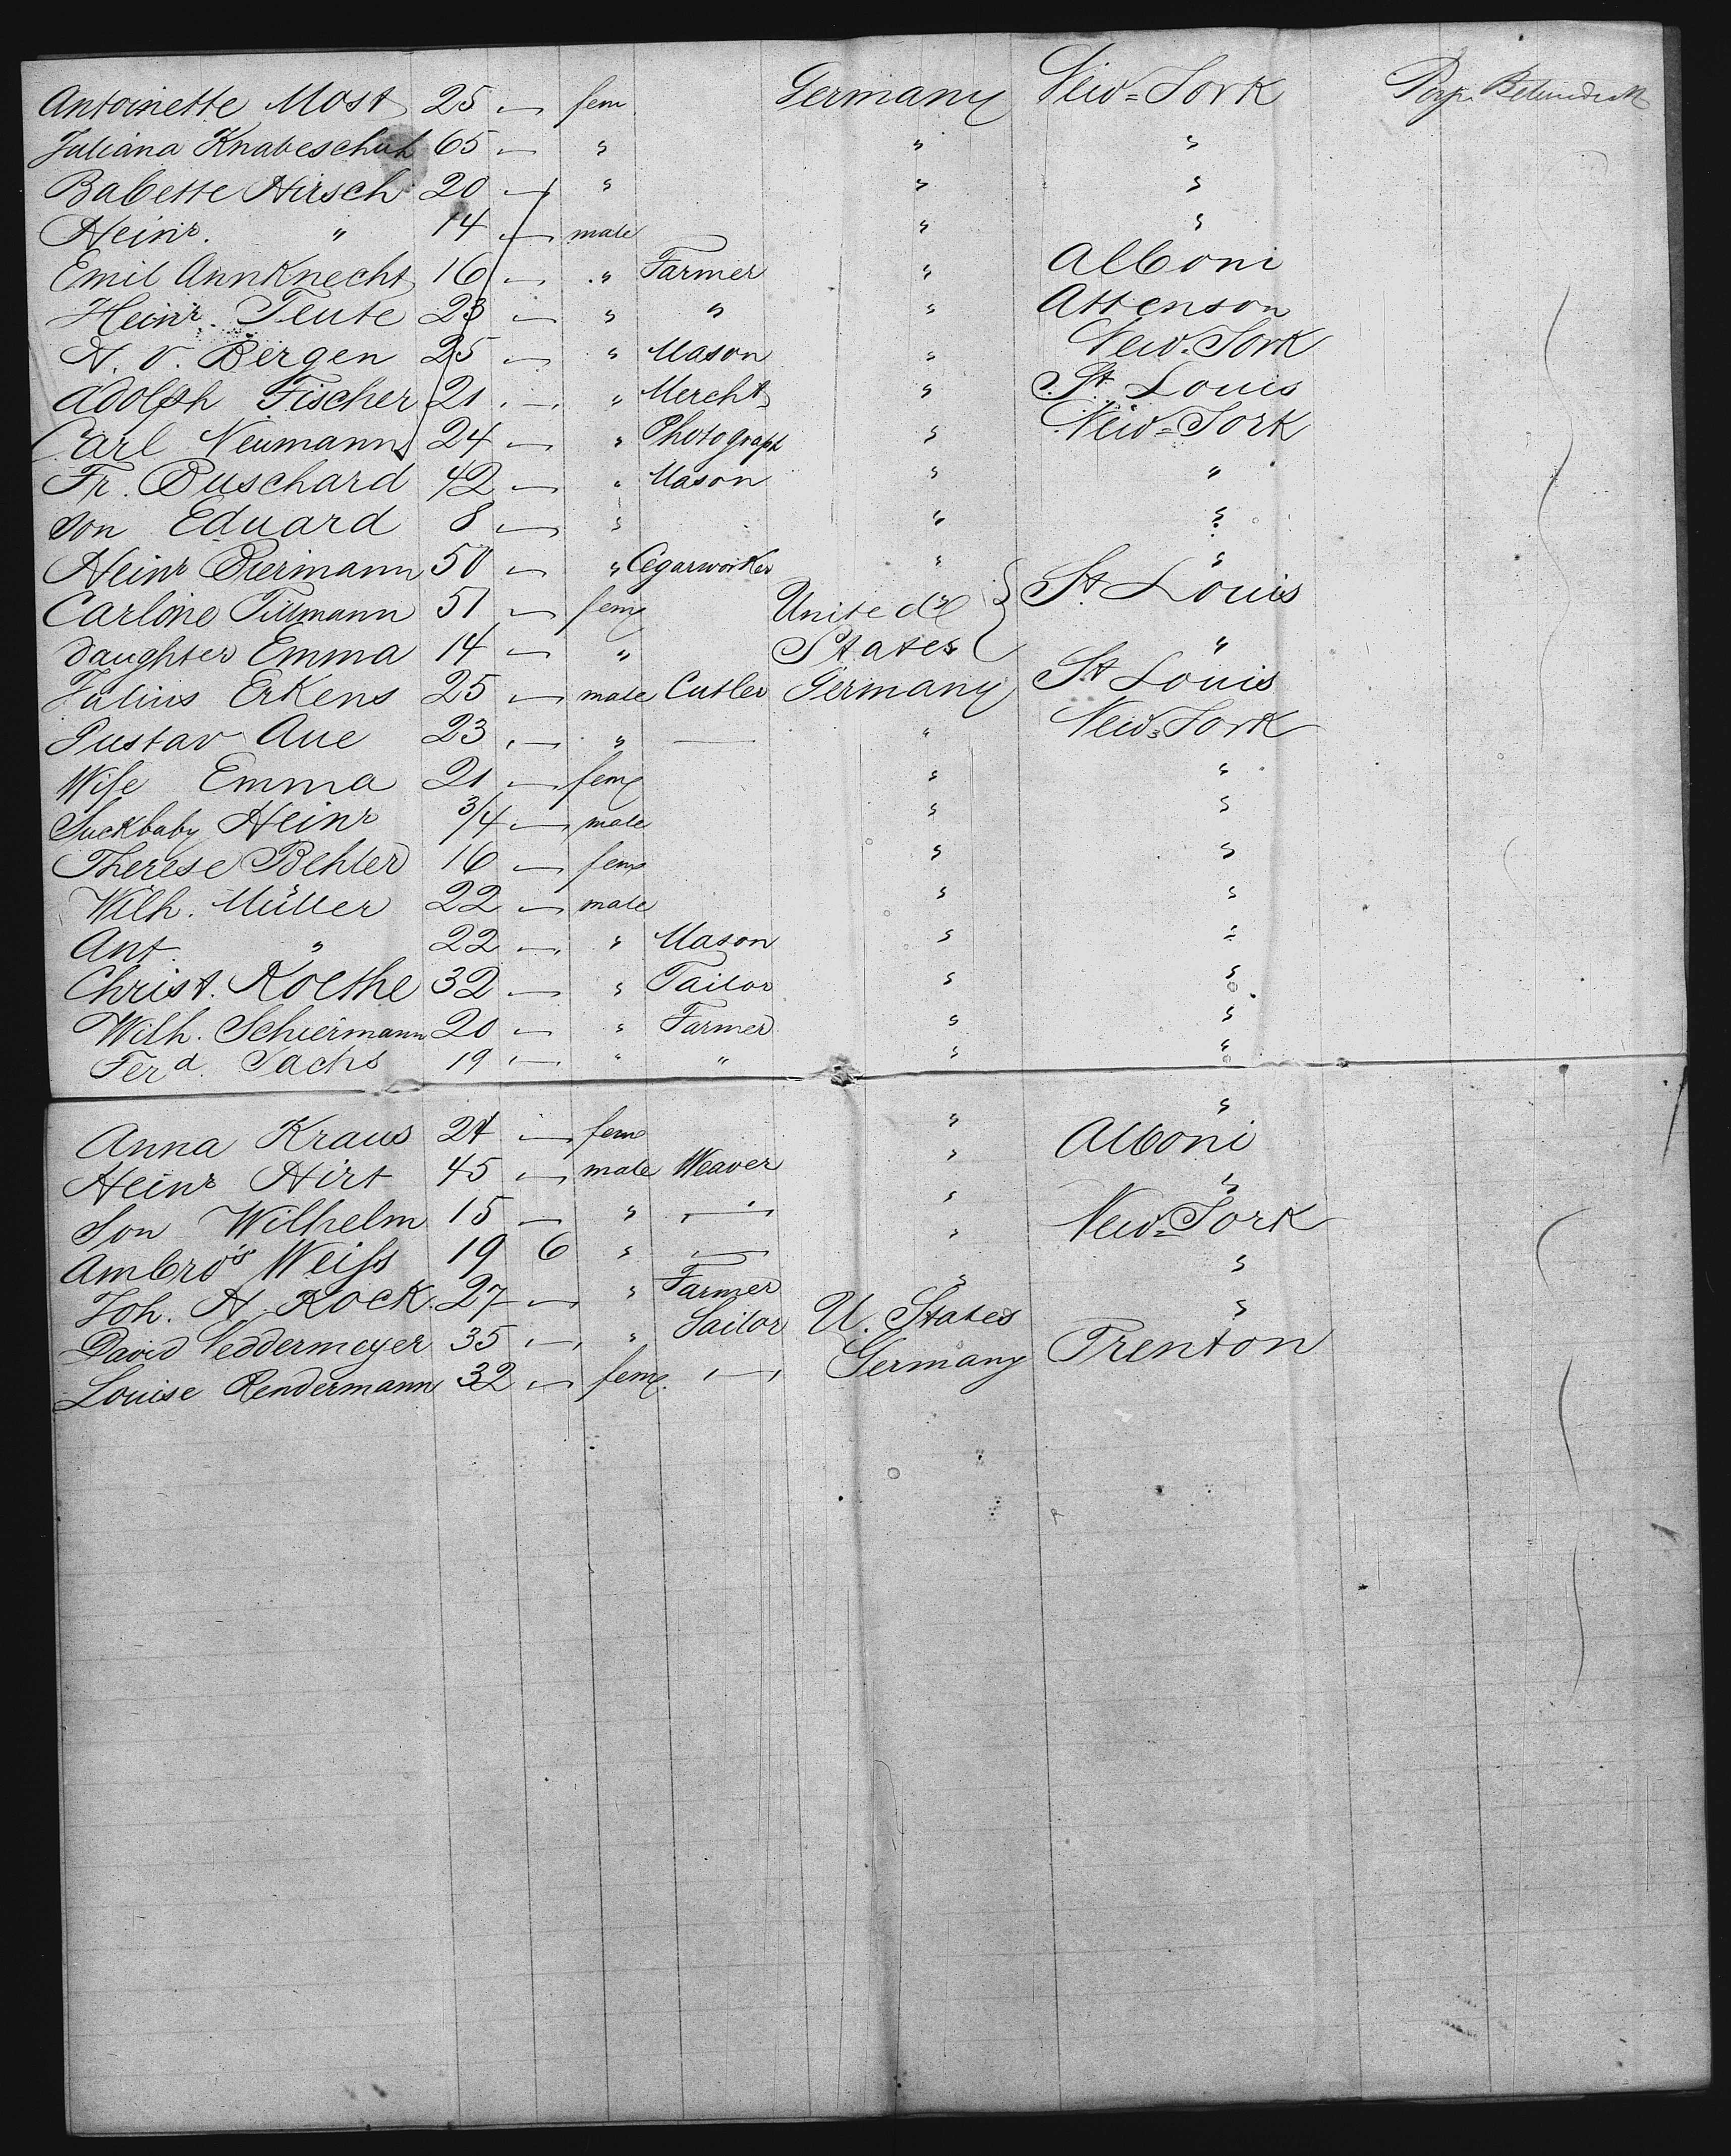 Antoinette Most 25 — fem Germany New=York
Juliana Knabeschuh 65 — " " "
Babette Hirsch 20 — " " "
Heinr. " 14 — male " "
Emil Annknecht 16 — " Farmer " Alboni
Heinr. Teute 23 — " " " Attenson
H. v. Bergen 25 — " Mason " New-York
Adolph Fischer 21 — " Mercht " St. Louis
Carl Neumann 24 — " Photograph " New=York
Fr. Buschard 42 — " Mason " "
Son Eduard 8 — " " "
Heinr Biermann 50 — " Cegarworker " "
Carline Tillmann 51 — fem United St. Louis
daughter Emma 14 — " States "
Julius Erkens 25 — male Cutler Germany St Louis
Gustav Aue 23 — " — " New=York
Wife Emma 21 — fem " "
Suckbaby Heinr 3/4 — male " "
Therese Behler 16 — fem " "
Wilh. Müller 22 — male " "
Ant. " 22 — " Mason " "
Christ. Koethe 32 — " Tailor " "
Wilh. Schiermann 20 — " Farmer " "
Ferd. Sachs 19 — " " " "
Anna Kraus 24 — fem " "
Heinr Hirt 45 — male Weaver " Alboni
Son Wilhelm 15 — " — " "
Ambros Weiss 19 6 " — " New=York
Joh. H. Kock 27 — " Farmer " "
David Veddermeyer 35 — " Sailor U. States "
Louise Rendermann 32 — fem. — Germany Trenton